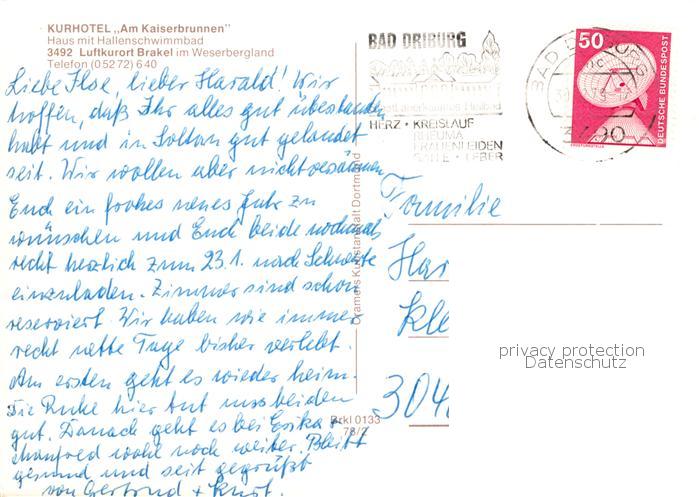 KURHOTEL „Am Kaiserbrunnen"
Haus mit Hallenschwimmbad
3492 Luftkurort Brakel im Weserbergland
Telefon (0 52 72) 6 40
Liebe Ilse, lieber Harald! Wir
hoffen, daß Ihr alles gut überstanden
habt und in Soltau gut gelandet
seit. Wir wollen aber nicht versäumen,
Euch ein frohes neues Jahr zu
wünschen und Euch beide nochmals
recht herzlich zum 23.1. nach Schwerte
einzuladen. Zimmer sind schon
reserviert. Wir haben wie immer
recht nette Tage bisher verlebt.
Am ersten geht es wieder heim.
Die Ruhe hier tut uns beiden
gut. Danach geht es bei Erika +
Manfred wohl noch weiter. Bleibt
gesund und seit gegrüßt
von Gertrud + Kurt.
Cramers Kunstanstalt Dortmund
Brkl 0133
78/2
BAD DRIBURG
Heilbad
HERZ • KREISLAUF
RHEUMA
FRAUENLEIDEN
GALLE • LEBER
BAD DRIBURG
3490
50
DEUTSCHE BUNDESPOST
Familie
Har
Kle
304
privacy protection
Datenschutz